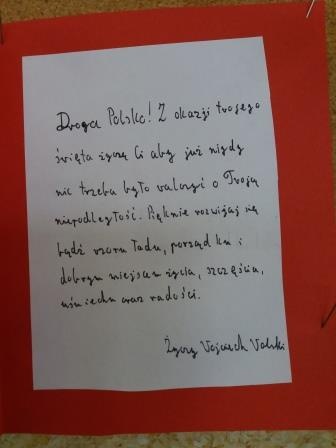 Droga Polsko! Z okazji twojego
święta życzę Ci aby już nigdy
nie trzeba było walczyć o Twoją
niepodległość. Pięknie rozwijaj się
bądź wzorem ładu, porządku i
dobrym miejscem życia, szczęścia,
uśmiechu oraz radości.
Życzy Wojciech